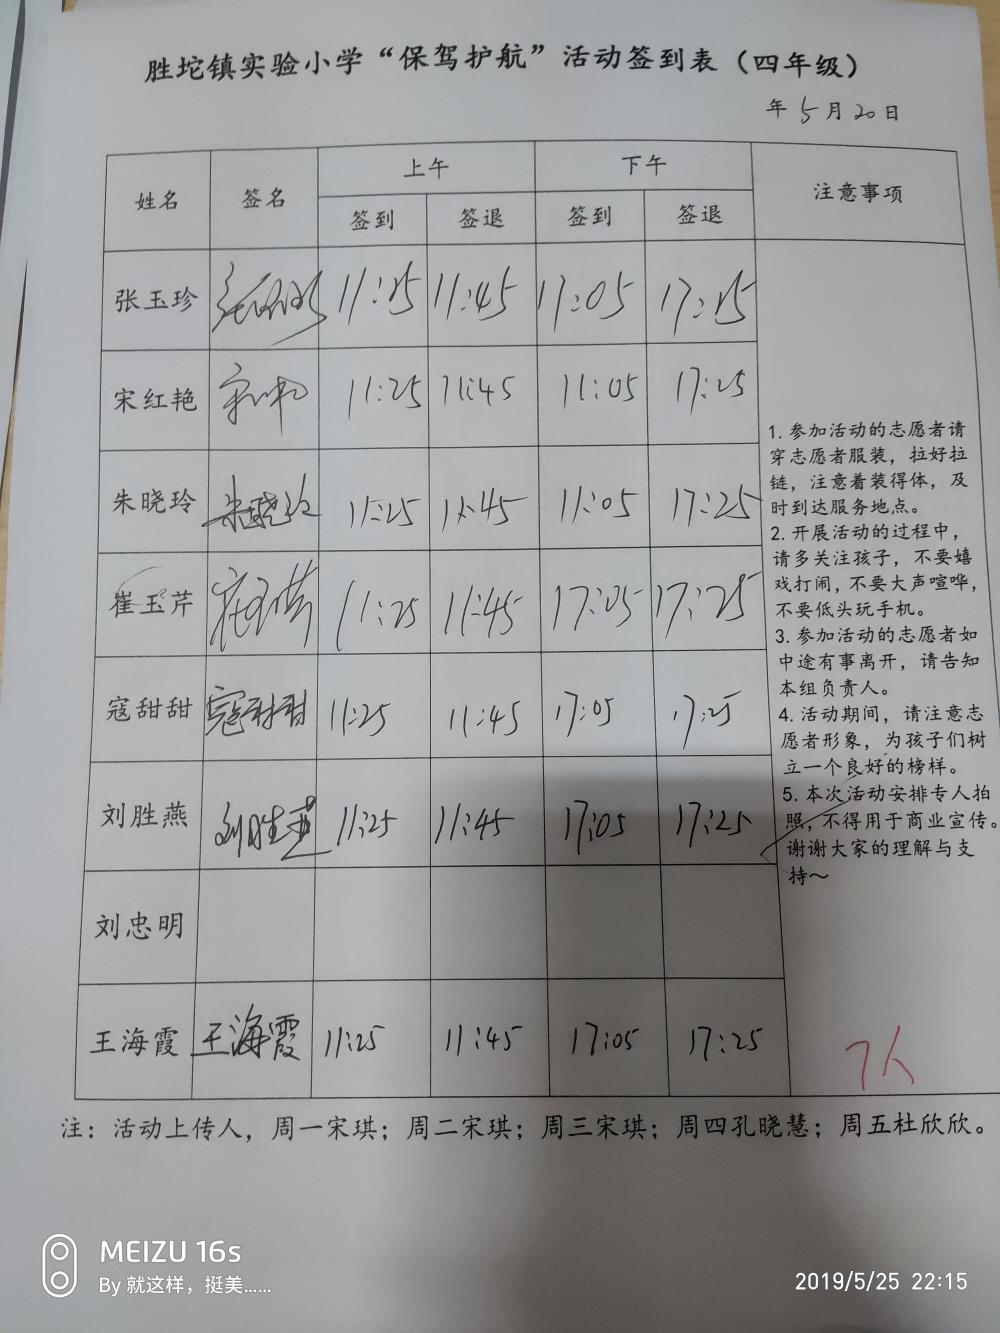 胜坨镇实验小学“保驾护航”活动签到表（四年级）
年 5 月 20 日
姓名 签名 上午 下午 注意事项
签到 签退 签到 签退
张玉珍 11:25 11:45 17:05 17:25
宋红艳 11:25 11:45 11:05 17:25
朱晓玲 朱晓玲 11:25 11:45 11:05 17:25
崔玉芹 11:25 11:45 17:05 17:25
寇甜甜 寇甜甜 11:25 11:45 17:05 17:25
刘胜燕 刘胜燕 11:25 11:45 17:05 17:25
刘忠明
王海霞 王海霞 11:25 11:45 17:05 17:25
1. 参加活动的志愿者请
穿志愿者服装，拉好拉
链，注意着装得体，及
时到达服务地点。
2. 开展活动的过程中，
请多关注孩子，不要嬉
戏打闹，不要大声喧哗，
不要低头玩手机。
3. 参加活动的志愿者如
中途有事离开，请告知
本组负责人。
4. 活动期间，请注意志
愿者形象，为孩子们树
立一个良好的榜样。
5. 本次活动安排专人拍
照，不得用于商业宣传。
谢谢大家的理解与支
持～
7人
注：活动上传人，周一宋琪；周二宋琪；周三宋琪；周四孔晓慧；周五杜欣欣。
MEIZU 16s
By 就这样，挺美……
2019/5/25 22:15